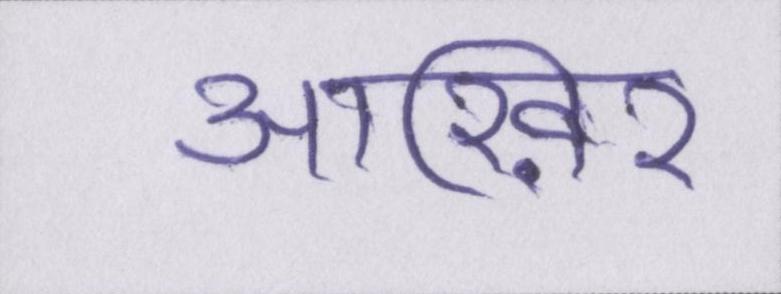 आख़िर